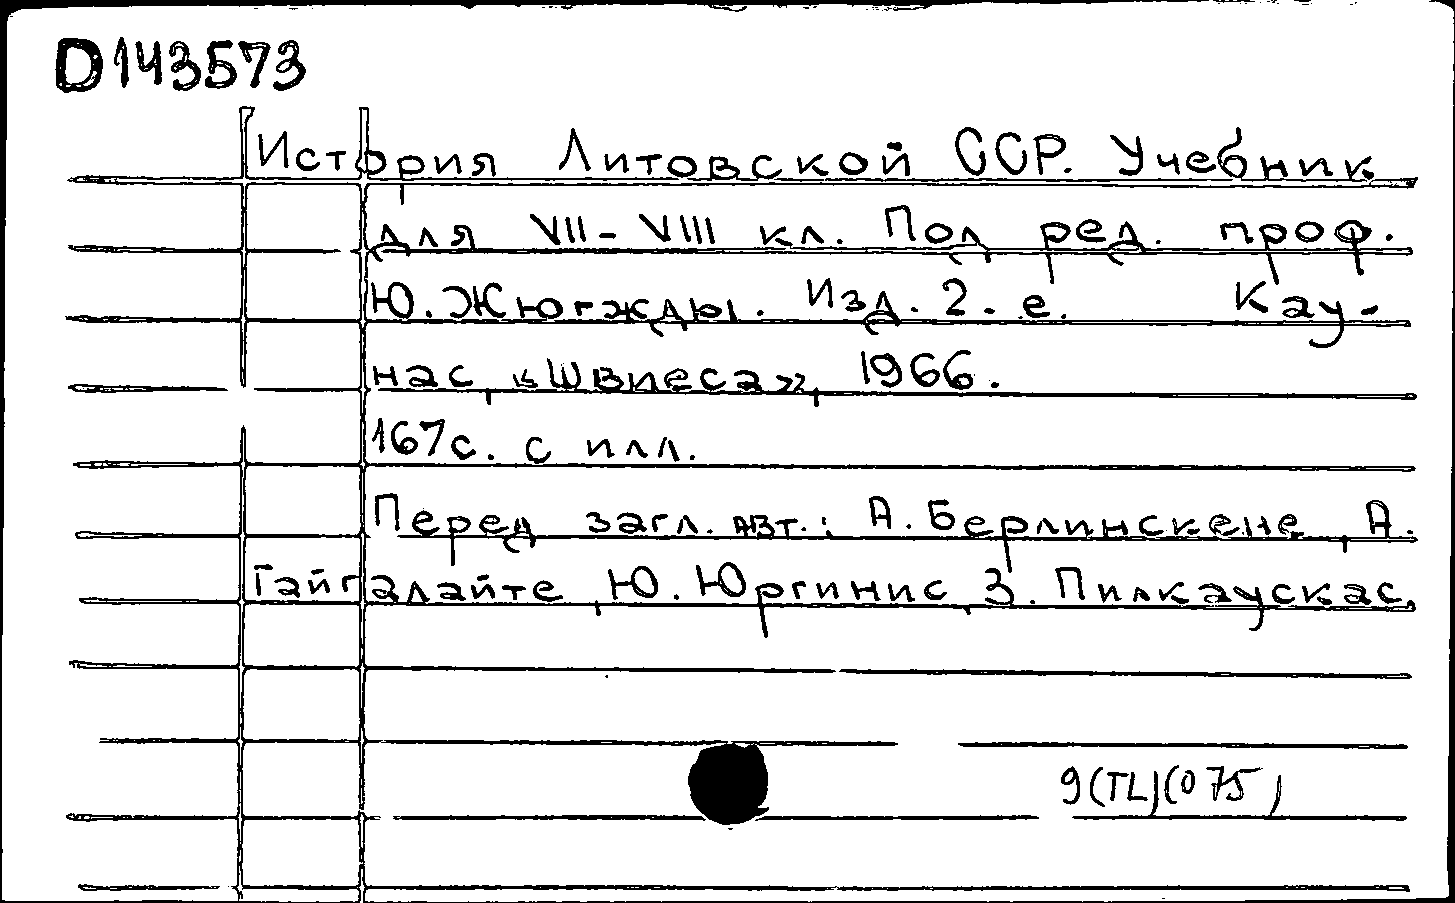 D143573
История Литовской ССР. Учебник
для VII-VIII кл. Под ред. проф.
Ю. Жюгжды. Изд. 2-е. Кау-
нас, «Швиеса», 1966.
167с. с илл.
Перед загл. авт.: А. Берлинскене, А.
Гайгалайте, Ю. Юргинис, З. Пилкаускас.
9(TL)(075)